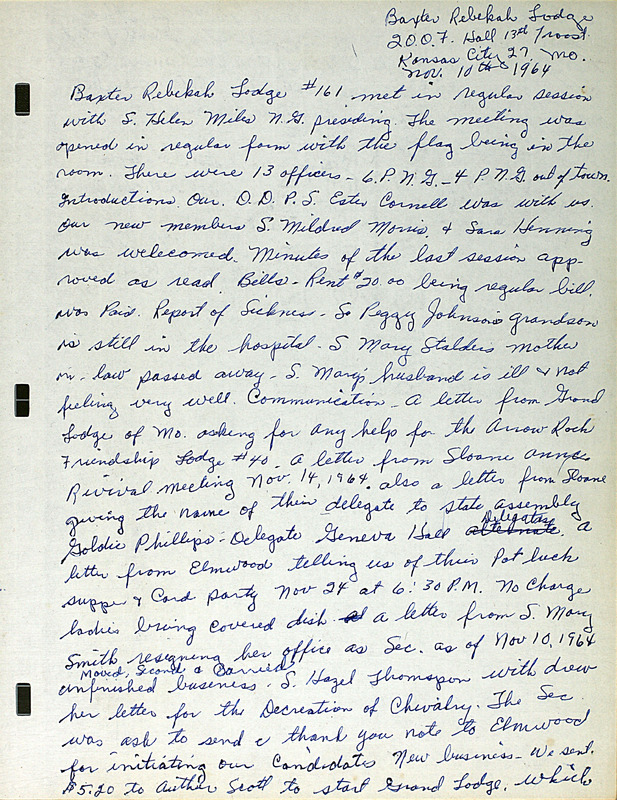 Baxter Rebekah Lodge
I.O.O.F. Hall 13th Troost
Kansas City 27, Mo.
Nov. 10th 1964
Baxter Rebekah Lodge #161 met in regular session
with S. Helen Miles N.G. presiding. The meeting was
opened in regular form with the flag being in the
room. There were 13 officers - 6 P.N.G. - 4 P.N.G. out of town.
Introductions. Our D.D.P. S. Ester Cornell was with us.
Our new members S. Mildred Morris, & Sara Henning
was welcomed. Minutes of the last session app-
roved as read. Bills - Rent $20.00 being regular bill.
was Paid. Report of Sickness - So Peggy Johnson's grandson
is still in the hospital. S Mary Stalders mother
in-law passed away - S. Mary's husband is ill & not
feeling very well. Communication - A letter from Grand
Lodge of Mo. asking for any help for the Arrow Rock
Friendship Lodge #40. A letter from Sloane
Rivival meeting Nov. 14, 1964. also a letter from Sloane
giving the name of their delegate to state assembly
Goldie Phillips - Delegate Geneva Hall alternate Delegate. A
letter from Elmwood telling us of their Pot luck
supper & Card party Nov 24 at 6:30 P.M. No Charge
ladies bring covered dish a letter from S. Mary
Smith resigning her office as Sec. as of Nov 10, 1964
Moved, Second & Carried
unfinished business. S. Hazel Thompson with drew
her letter for the Decreation of Chivalry. The Sec
was ask to send a thank you note to Elmwood
for initiating our Candidates New business - We sent
$5.20 to Author Scott to start Grand Lodge, which